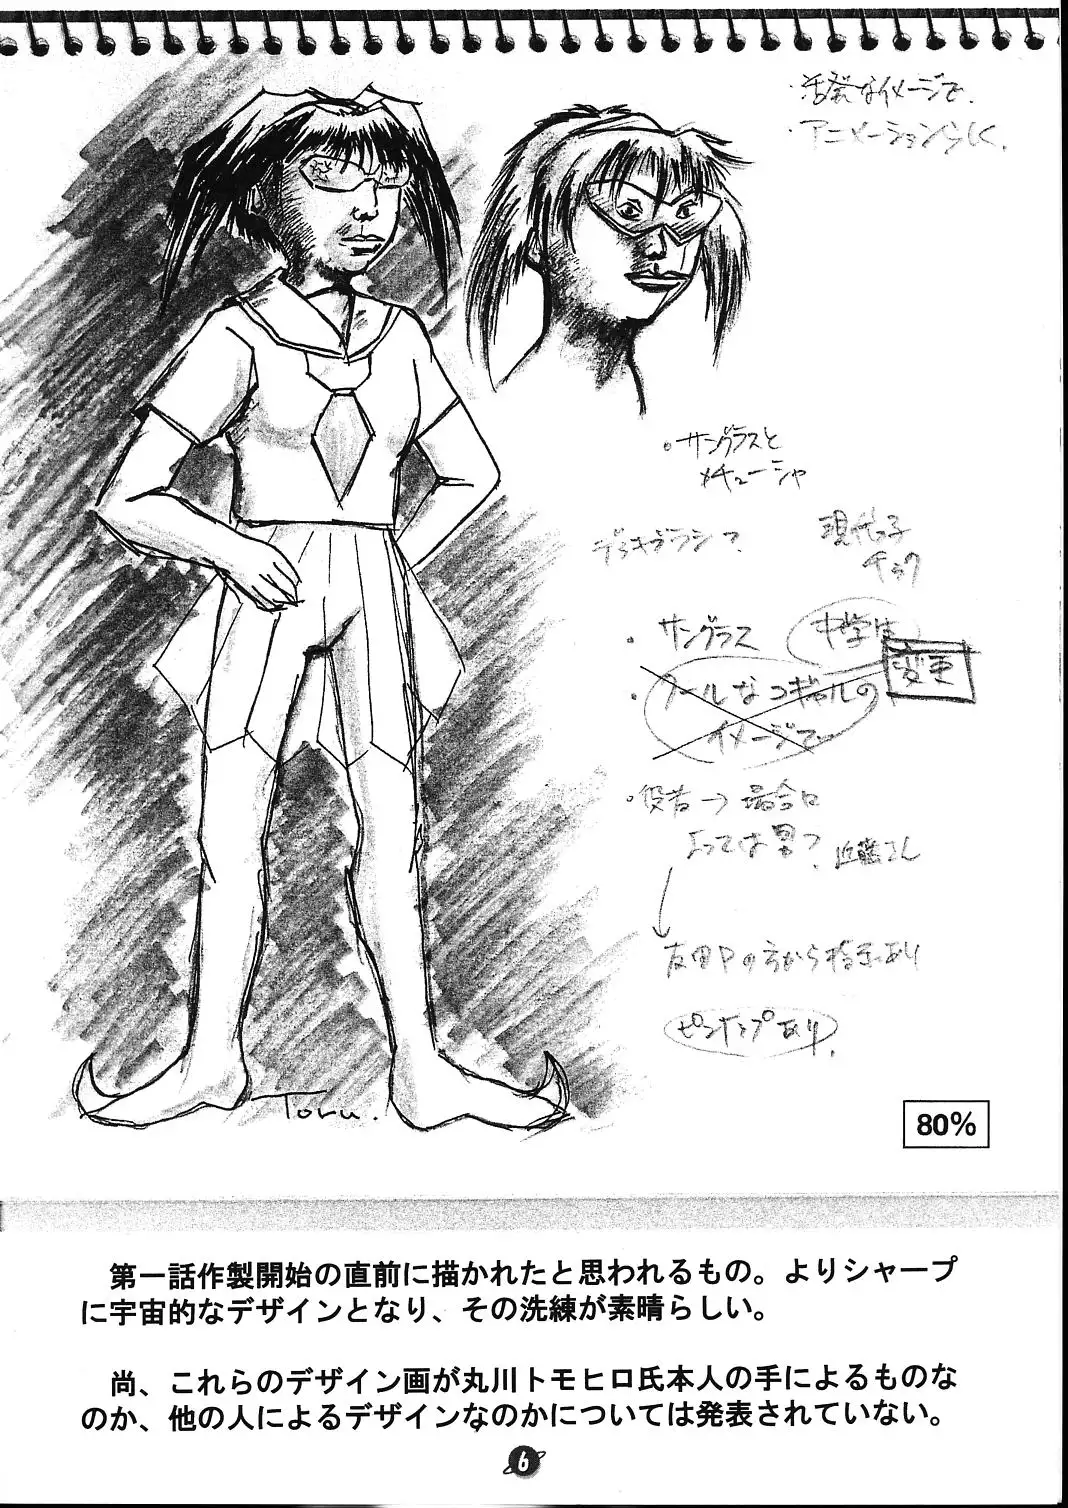 ・活発なイメージで.
・アニメーションらしく.
・サングラスと
メチューシャ
デッキブラシっ
現代っ子
チック
・サングラス
中学生
変更
・クールなコギャルの
イメージで
・役者→場合に
よっては男? 近藤さん
友田Pの方から指示あり
ピンナップあり.
Toru.
80%
第一話作製開始の直前に描かれたと思われるもの。よりシャープ
に宇宙的なデザインとなり、その洗練が素晴らしい。
尚、これらのデザイン画が丸川トモヒロ氏本人の手によるものな
のか、他の人によるデザインなのかについては発表されていない。
6